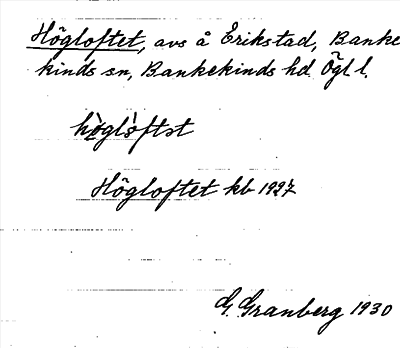 Högloftet, avs å Erikstad, Banke
kinds sn, Bankekinds hd. Ögl l.
hòglòftət
Högloftet kb 1927
G. Granberg 1930